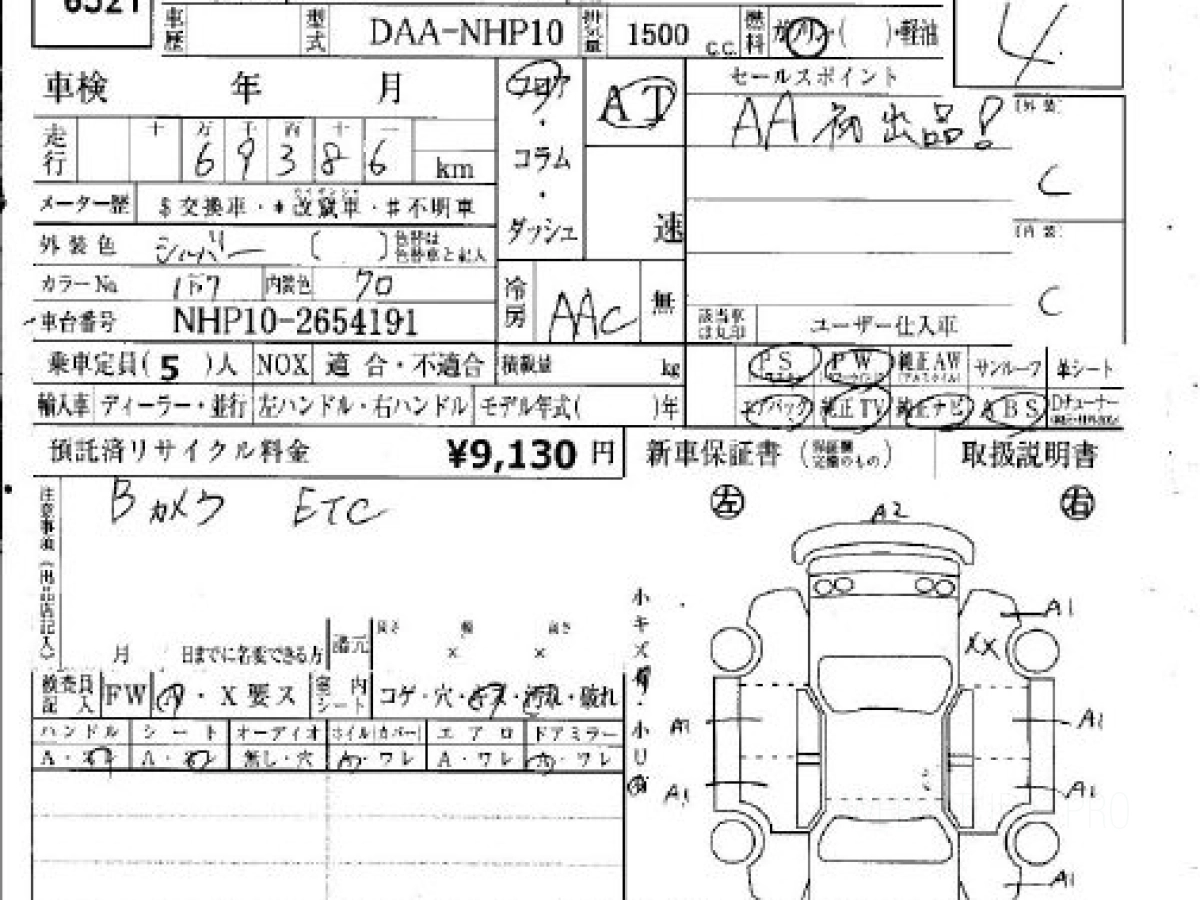 6321
車歴 型式 DAA-NHP10 排気量 1500 C.C. 燃料 ガソリン( )・軽油
4
車検 年 月
フロア・コラム・ダッシュ
AT
速
セールスポイント
AA初出品!
走行 十万千百十一
69386 km
メーター歴 $交換車・*改竄車・#不明車
外装色 シルバー ( ) 色替は色替車と記入
カラーNo. 1F7 内装色 70
車台番号 NHP10-2654191
冷房 AAC 無
[外装] C
[内装] C
該当車は丸印 ユーザー仕入車
乗車定員( 5 )人 NOX 適合・不適合 積載量 kg
PS PW 純正AW サンルーフ 革シート
輸入車 ディーラー・並行 左ハンドル・右ハンドル モデル年式( )年
エアバック 純正TV 純正ナビ ABS Dチューナー
預託済リサイクル料金 ¥9,130 円
新車保証書 (保証欄完備のもの) 取扱説明書
注意事項(出品店記入)
Bカメラ ETC
左 右
A2
月 日までに名変できる方 諸元 長さ 幅 × 高さ ×
小キズ 小U
検査員記入 FW A・X要ス 室内シート コゲ・穴・キズ・汚れ・破れ
ハンドル シート オーディオ ホイル(カバー) エアロ ドアミラー
A・スレ A・スレ 無し・穴 A・ワレ A・ワレ A・ワレ
A1
XX
A1 A1
A1 A1
A1